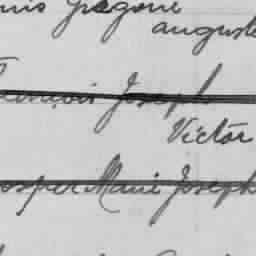 Grégoire
auguste
François Joseph
Victor
osper Marie Joseph